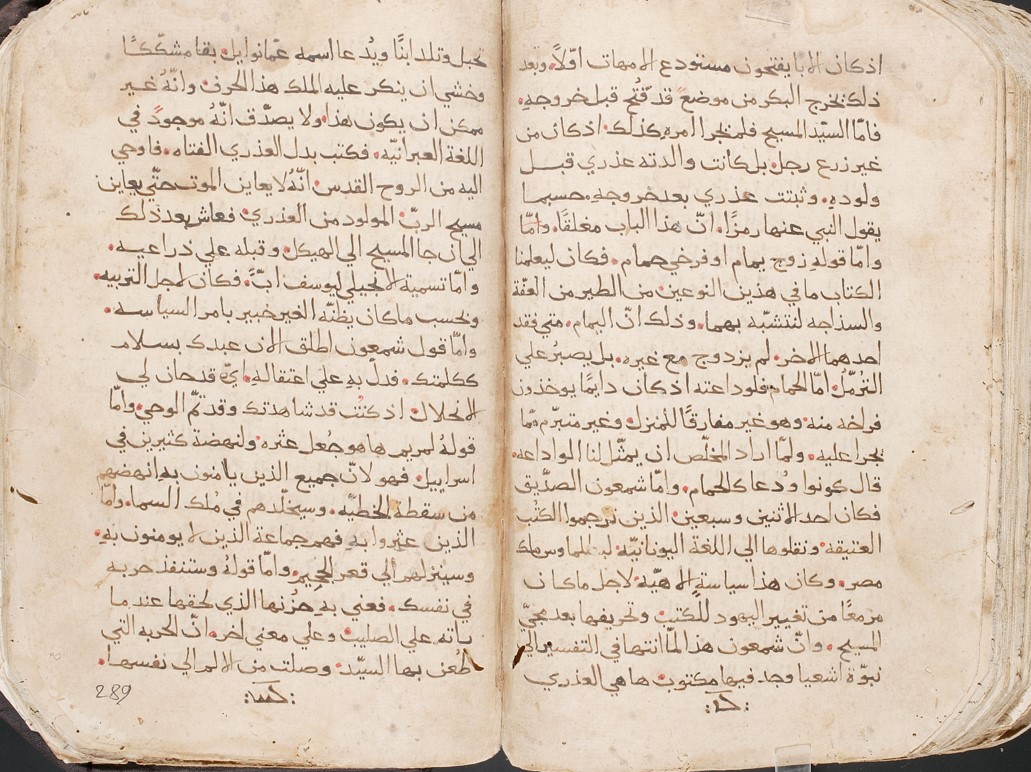 اذ كان الابا يفتحون مستودع الامهات اوّلاً. وبعد
ذلك يخرج البكر من موضع قد فُتح قبل خروجه.
فامّا السيّد المسيح فلم يجرا امره كذلك. اذ كان من
غير زرع رجل. بل كانت والدته عذري قبل
ولوده. وثبتت عذري بعد خروجه. حسبما
يقول النبي عنها رمزًا. انّ هذا الباب مغلقًا. وامّا
وامّا قوله زوج يمام او فرخي حمام. فكان ليعلمنا
الكتاب ما في هذين النوعين من الطير من العفّة
والسذاجه لنتشبّه بهما. وذلك انّ اليمام. متي فقد
احدهما الاخر. لم يزدوج مع غيره. بل يصبرُ علي
الترمّل. امّا الحمام فلوداعته اذ كان دايمًا يوخذون
فراخه منه. وهو غير مفارقًا للمنزل. وغير متبرّم ممّا
يجرا عليه. ولمّا اراد المخلّص ان يمثّل لنا الوداعه.
قال كونوا ودُعا كالحمام. وامّا شمعون الصدّيق
فكان احد الاثنين وسبعين الذين ترجموا الكتب
العتيقه. ونقلوها الي اللغة اليونانيّه. لبطلماوس ملك
مصر. وكان هذا سياسة الاهيّة. لاجل ما كان
مزمعًا من تغيير اليهود للكتب وتحريفها بعد مجيّ
المسيح. وانّ شمعون هذا لمّا انتها في التفسير الي
نبوّة اشعيا وجد فيها مكتوب ها هي العذري
تحبل وتلد ابنًا ويُدعا اسمه عمّانوايل. بقا مشكّكًا
وخشي ان ينكر عليه الملك هذا الحرف. وانّه غير
ممكن ان يكون هذا. ولا يصدّق انّهُ موجودً في
اللغة العبرانيّه. فكتب بدل العذري الفتاه. فاوحي
اليه من الروح القدس. انّهُ لا يعاين الموت حتّي يعاين
مسيح الربّ المولود من العذري. فعاش بعد ذلك
الي ان جا المسيح الي الهيكل. وقبله علي ذراعيه.
وامّا تسمية الانجيلي ليوسف ابّ. فكان لاجل التربيه.
وبحسب ما كان يظنّه الغير خبير بامر السياسه.
وامّا قول شمعون اطلق الان عبدك بسلام
ككلمتك. فدلّ به علي اعتقاله. ايّ قد حان لي
الانحلال. اذ كنت قد شاهدتك وقد تمّ الوحي. وامّا
قولهُ لمريم ها هو جُعل عثره. ولنهضة كثيرين في
اسراييل. فهو لانّ جميع الذين يامنون به انهضهم
من سقطة الخطيّه. وسيخلّدهم في مُلك السما. وامّا
الذين عثروا به فهم جماعة الذين لا يومنون به.
وسينزلهم الي قعر الجحيم. وامّا قولهُ وستنفذ حربه
في نفسك. فعني به حزنها الذي لحقها عند ما
راته علي الصليب. وعلي معني اخر. انّ الحربه التي
طُعن بها السيّد. وصلت من الالم الي نفسها.
289